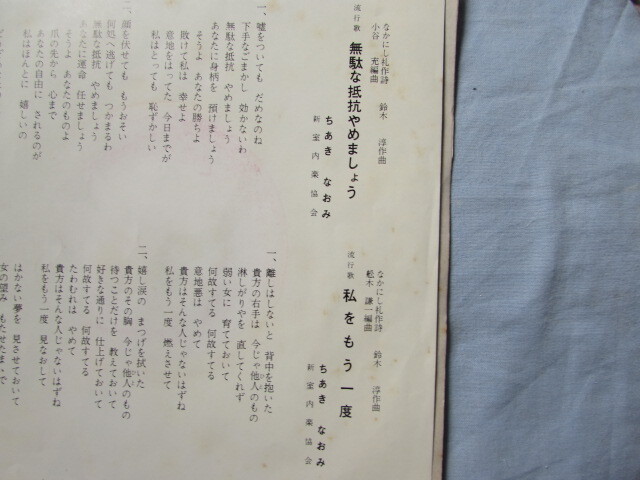 流行歌
無駄な抵抗やめましょう
なかにし礼作詩
鈴木 淳作曲
小谷 充編曲
ちあき なおみ
新室内楽協会
一、嘘をついても だめなのね
下手なごまかし 効かないわ
無駄な抵抗 やめましょう
あなたに身柄を 預けましょう
そうよ あなたの勝ちよ
敗けて私は 幸せよ
意地をはってた 今日までが
私はとっても 恥ずかしい
二、顔を伏せても もうおそい
何処へ逃げても つかまるわ
無駄な抵抗 やめましょう
あなたに運命 任せましょう
そうよ あなたのものよ
爪の先から 心まで
あなたの自由に されるのが
私はほんとに 嬉しいの
流行歌
私をもう一度
なかにし礼作詩
鈴木 淳作曲
松木 謙一編曲
ちあき なおみ
新室内楽協会
一、離しはしないと 背中を抱いた
貴方の右手は 今じゃ他人のもの
淋しがりやを 直してくれず
弱い女に 育てておいて
何故すてる 何故すてる
意地悪は やめて
貴方はそんな人じゃないはずね
私をもう一度 燃えさせて
二、嬉し涙の まつげを拭いた
貴方のその胸 今じゃ他人のもの
待つことだけを 教えておいて
好きな通りに 仕上げておいて
何故すてる 何故すてる
たわむれは やめて
貴方はそんな人じゃないはずね
私をもう一度 見なおして
はかない夢を 見させておいて
女の望み もたせたままで